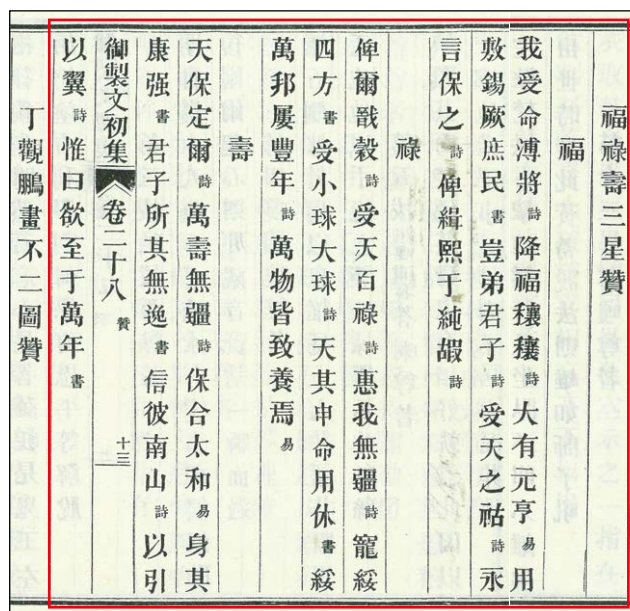 福祿壽三星贊
福
我受命溥將詩降福穰穰詩大有元亨易用
敷錫厥庶民書豈弟君子詩受天之祜詩永
言保之詩俾緝熙于純嘏詩
祿
俾爾戩穀詩受天百祿詩惠我無疆詩寵綏
四方書受小球大球詩天其申命用休書綏
萬邦屢豐年詩萬物皆致養焉易
壽
天保定爾詩萬壽無疆詩保合太和易身其
康强書君子所其無逸書信彼南山詩以引
御製文初集 卷二十八 贊 十三
以翼詩惟曰欲至于萬年書
丁觀鵬畫不 圖贊